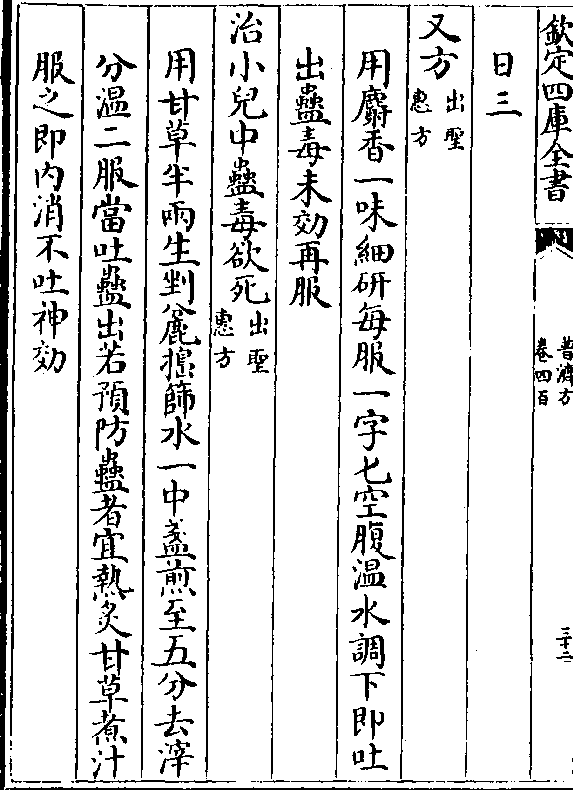 欽定四庫全書
普濟方
卷四百
三十二
日三
又方出聖惠方
用麝香一味細研每服一字七空腹温水調下即吐
出蠱毒未効再服
治小兒中蠱毒欲死出聖惠方
用甘草半兩生剉麄搗篩水一中盞煎至五分去滓
分温二服當吐蠱出若預防蠱者宜熟炙甘草煮汁
服之即内消不吐神効